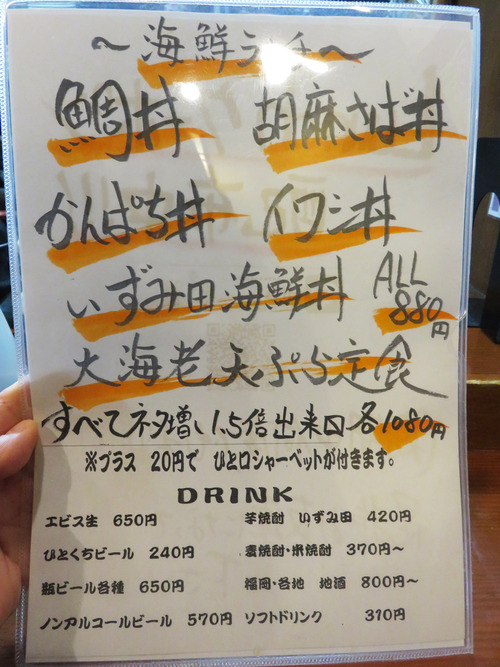 ～海鮮ランチ～
鯛丼　胡麻さば丼
かんぱち丼　イワシ丼
いずみ田海鮮丼　ALL 880円
大海老天ぷら定食
すべてネタ増し1.5倍出来□各1080円
※プラス　20円で　ひと口シャーベットが付きます。
DRINK
エビス生　650円　芋焼酎　いずみ田　420円
ひとくちビール　240円　麦焼酎・米焼酎　370円～
瓶ビール各種　650円　福岡・各地　地酒　800円～
ノンアルコールビール　570円　ソフトドリンク　310円